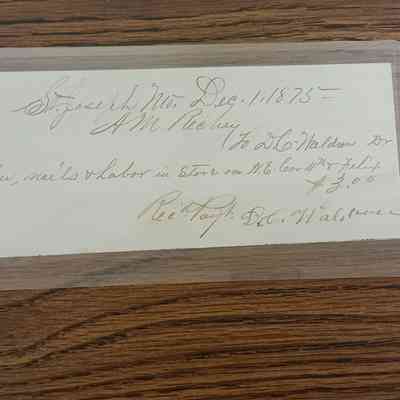 St. Joseph Mo. Dec. 1. 1875
A M
To D C Waldron Dr
nails & Labor in Store on N.E. Cor 4th & Felix
$3.00
Recd Payt. D. C. Waldron